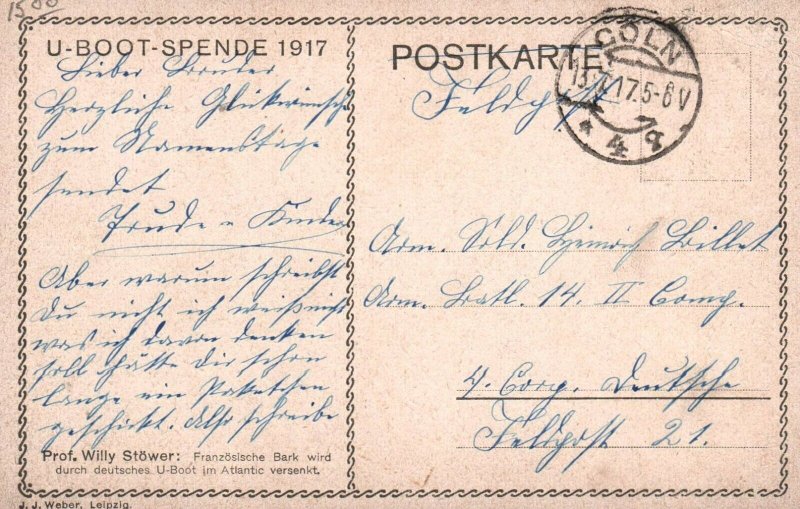 1500
U-BOOT-SPENDE 1917
Lieber Bruder
Herzliche Glükwünsche
zum Namenstage
sendet
Trude u Kinder
Aber warum schreibst
Du nicht ich weiß nicht
was ich davon denken
soll hätte dir schon
lange ein Paketchen
geschickt. Also schreibe
Prof. Willy Stöwer: Französische Bark wird
durch deutsches U-Boot im Atlantic versenkt.
J. J. Weber, Leipzig.
POSTKARTE
Feldpost
CÖLN
17.5-6V
* 4 q
Arm. Sold. Heinrich Billet
Arm. Batl. 14. II Comp.
4. Corp. Deutsche
Feldpost 21.